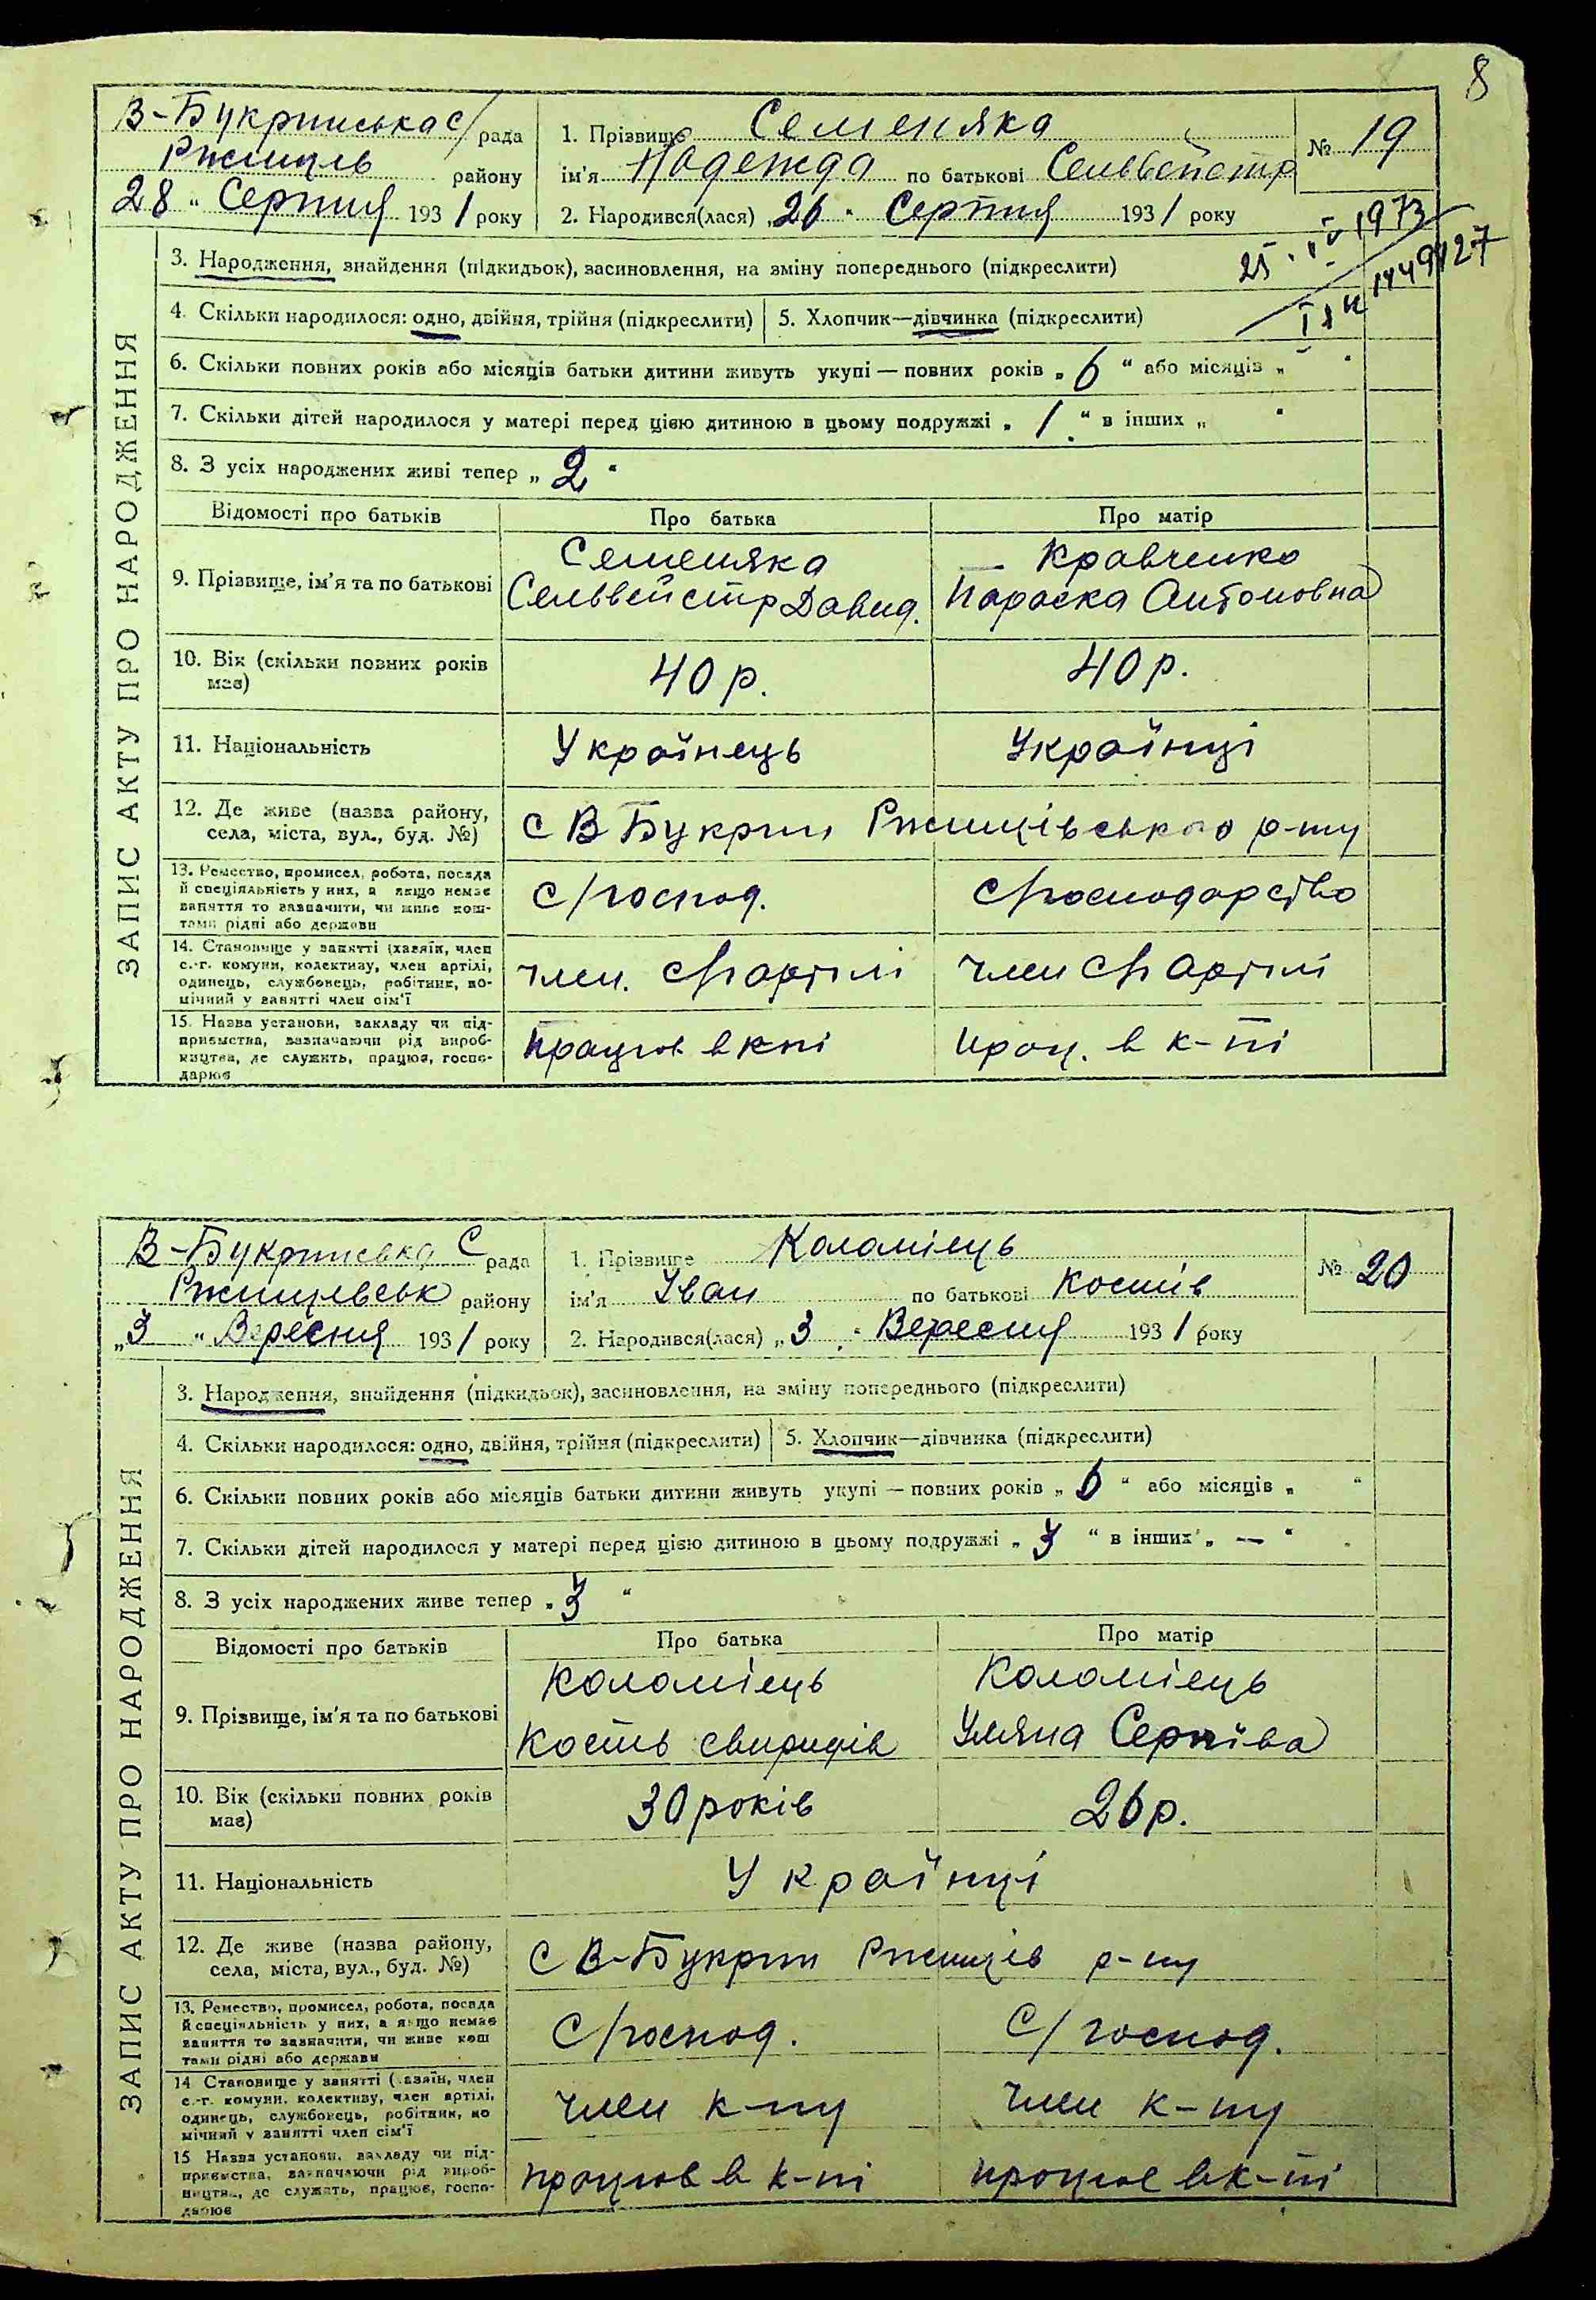 8
В-Букринська с/рада
Ржищів району
28 " Серпня 1931 року
1. Прізвище Семеняка
ім'я Надежда по батькові Сельвейстр
2. Народився(лася) „26 " Серпня 1931 року
№ 19
25. IV 1973
1449127
ЗАПИС АКТУ ПРО НАРОДЖЕННЯ
3. Народження, знайдення (підкидьок), засиновлення, на зміну попереднього (підкреслити)
4. Скільки народилося: одно, двійня, трійня (підкреслити) 5. Хлопчик—дівчинка (підкреслити)
6. Скільки повних років або місяців батьки дитини живуть укупі — повних років „ 6 " або місяців „ — "
7. Скільки дітей народилося у матері перед цією дитиною в цьому подружжі „ 1 " в інших „ "
8. З усіх народжених живі тепер „ 2 "
Відомості про батьків Про батька Про матір
9. Прізвище, ім'я та по батькові
Семеняка
Сельвейстр Давид.
Кравченко
Параска Антоновна
10. Вік (скільки повних років має) 40 р. 40 р.
11. Національність Українець Українці
12. Де живе (назва району,
села, міста, вул., буд. №)
с В Букрин Ржищівського р-ну
13. Ремество, промисел, робота, посада
й спеціяльність у них, а якщо немає
заняття то зазначити, чи живе кош-
тами рідні або держави
с/господ. с/господарство
14. Становище у занятті (хазяїн, член
с.-г. комуни, колективу, член артілі,
одинець, службовець, робітник, по-
мічний у занятті член сім'ї
член. с/г артілі член с/г артілі
15. Назва установи, закладу чи під-
приємства, зазначаючи рід вироб-
ництва, де служить, працює, госпо-
дарює
працює в кні прац. в к-ні
В-Букринська с рада
Ржищевськ району
„3 " Вересня 1931 року
1. Прізвище Коломієць
ім'я Іван по батькові Костів
2. Народився(лася) „3 " Вересня 1931 року
№ 20
ЗАПИС АКТУ ПРО НАРОДЖЕННЯ
3. Народження, знайдення (підкидьок), засиновлення, на зміну попереднього (підкреслити)
4. Скільки народилося: одно, двійня, трійня (підкреслити) 5. Хлопчик—дівчинка (підкреслити)
6. Скільки повних років або місяців батьки дитини живуть укупі — повних років „ 6 " або місяців „ "
7. Скільки дітей народилося у матері перед цією дитиною в цьому подружжі „ 3 " в інших „ — "
8. З усіх народжених живе тепер „ 3 "
Відомості про батьків Про батька Про матір
9. Прізвище, ім'я та по батькові
Коломієць
Кость Свиридів
Коломієць
Уляна Сергіїва
10. Вік (скільки повних років має) 30 років 26 р.
11. Національність Українці
12. Де живе (назва району,
села, міста, вул., буд. №)
с В-Букрин Ржищів р-ну
13. Ремество, промисел, робота, посада
й спеціяльність у них, а якщо немає
заняття то зазначити, чи живе кош
тами рідні або держави
с/господ. с/господ.
14 Становище у занятті (хазяїн, член
с.-г. комуни, колективу, член артілі,
одинець, службовець, робітник, по
мічний у занятті член сім'ї
член к-ну член к-ну
15 Назва установи, закладу чи під-
приємства, зазначаючи рід вироб-
ництва, де служить, працює, госпо-
дарює
працює в к-ні працює в к-ні